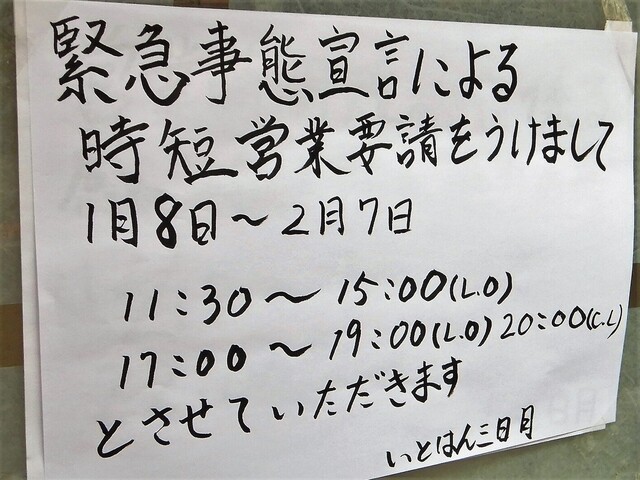 緊急事態宣言による
時短営業要請をうけまして
1月8日～2月7日
11:30～15:00(L.O)
17:00～19:00(L.O) 20:00(C.L)
とさせていただきます
いとはん三日月